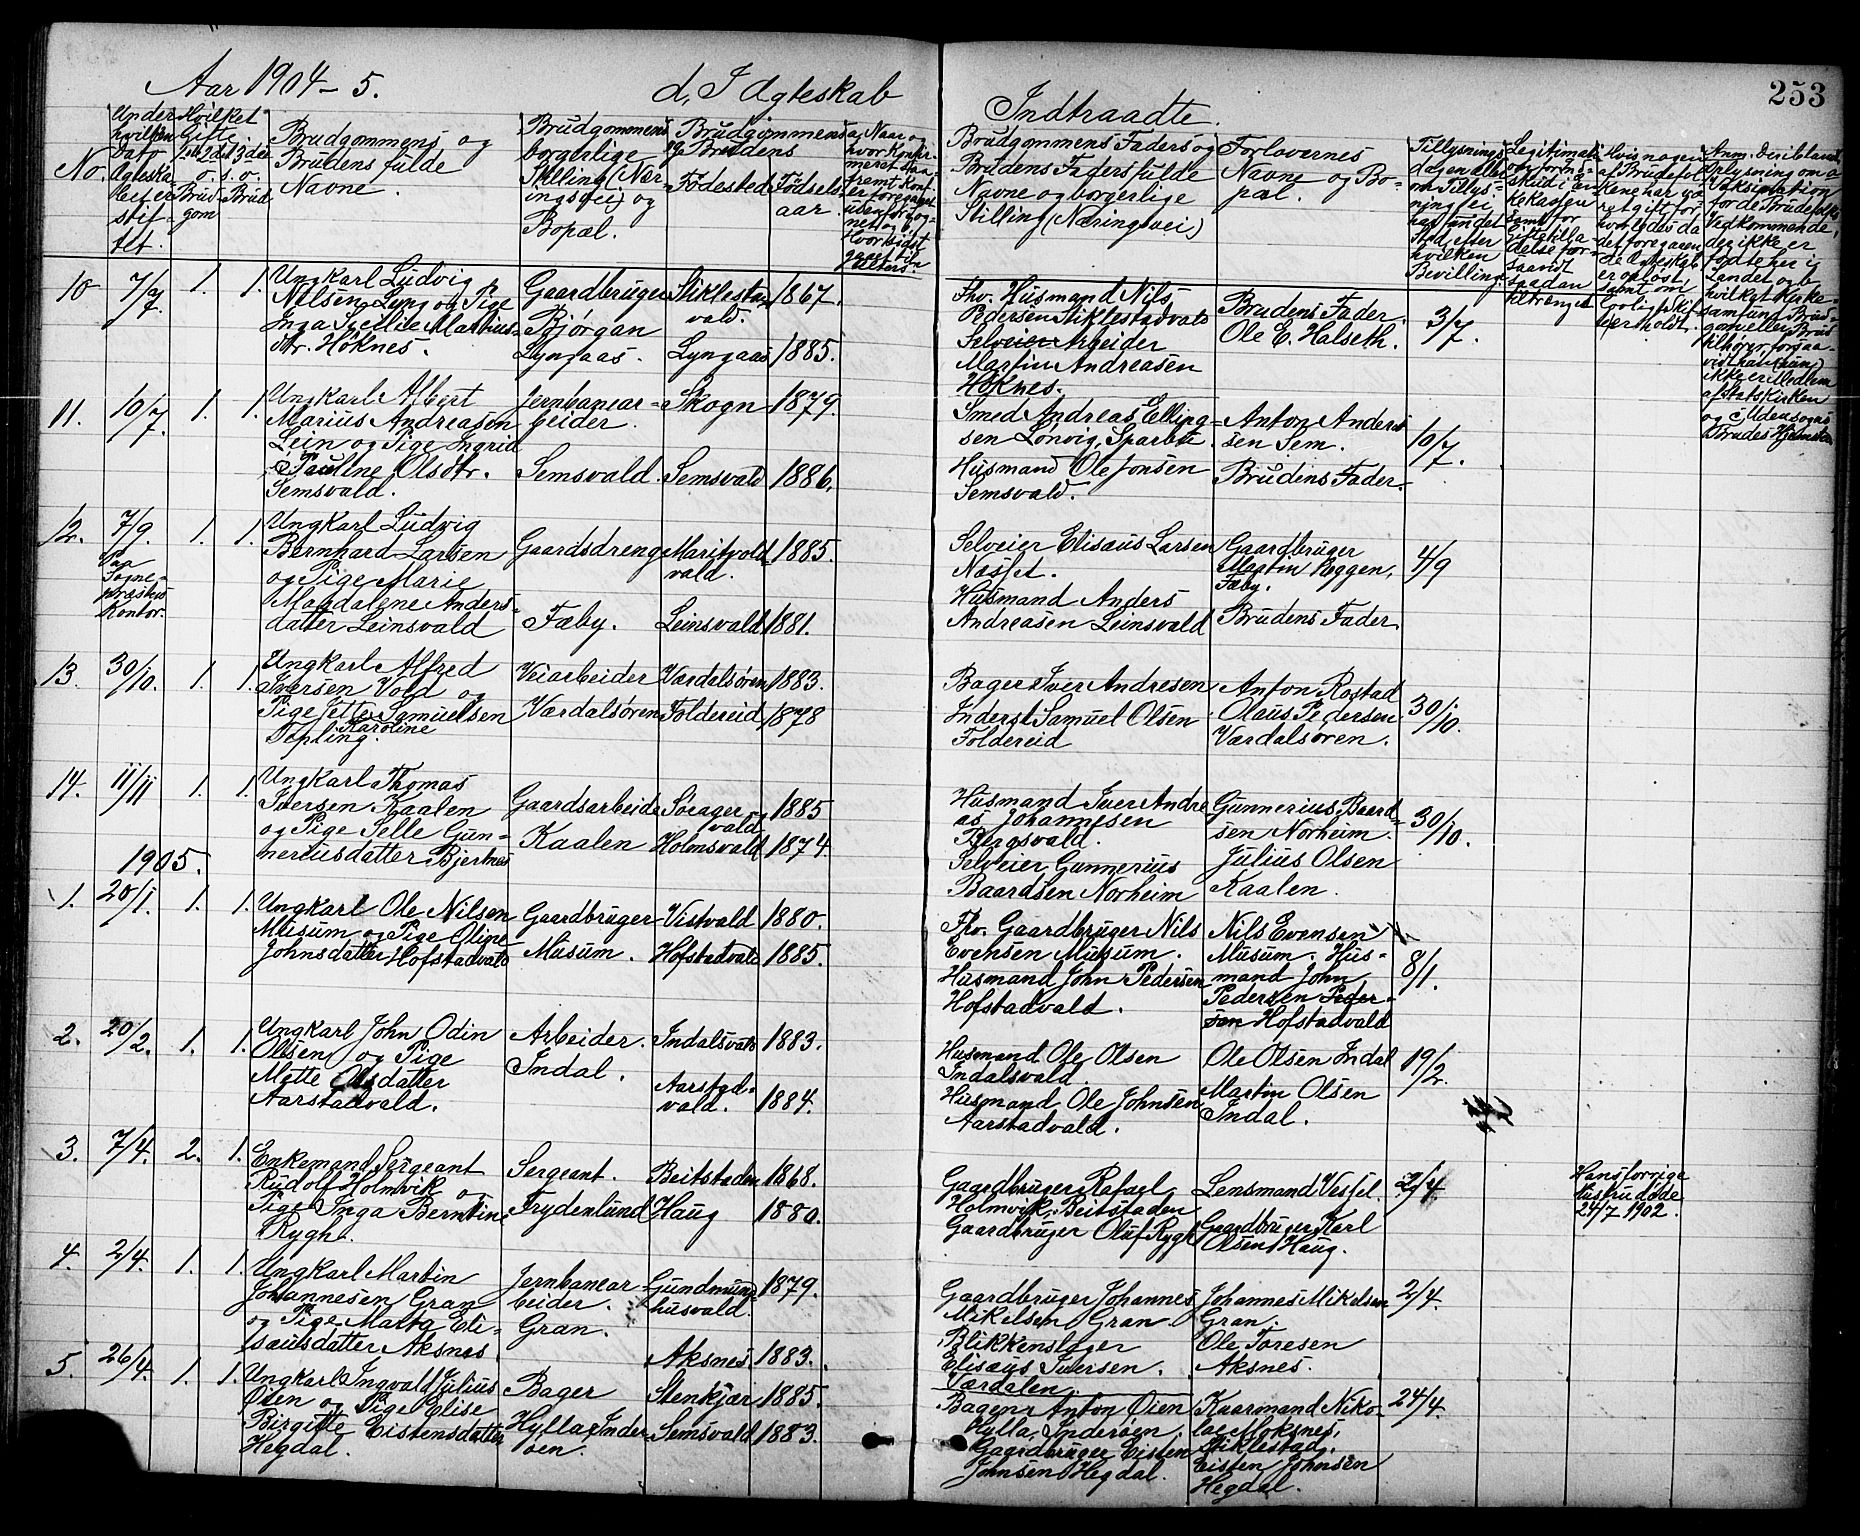 Aar 1904-5.
d, I Ægteskab
Indtraadte.
253
No.
Under
hvilken
Dato
Ægteska-
bet er
stif-
tet.
Hvilket
Gifte
1ste 2det 3die
o. s. v.
Brud-
gom
Brud
Brudgommens og
Brudens fulde
Navne.
Brudgommens
borgerlige
Stilling (Nær-
ingsvei) og
Bopæl.
Brudgommens
og Brudens
Fødested
Fødsels-
aar.
Brudgommens Faders og
Brudens Faders fulde
Navne og borgerlige
Stilling (Næringsvei)
Forlovernes
Navne og Bo-
pæl.
Tillysnings-
dagen eller
om Tillys-
ning ei
har fundet
Sted, efter
hvilken
Bevilling.
10 7/7. 1. 1.
Ungkarl Ludvig
Nilsen Lyng og Pige
Inga Marius-
dtr. Høknes.
Gaardbruger
Bjørgan
Lyngaas.
Stiklestad-
vald. 1867.
Lyngaas 1885.
Fhv. Husmand Nils
Pedersen Stiklestadvald
Selveier Arbeider
Martin Andreasen
Høknes.
Brudens Fader.
Ole E. Halseth.
3/7.
11. 10/7. 1. 1.
Ungkarl Albert
Marius Andreasen
Lein og Pige Ingrid
Pauline Olsdtr.
Semsvald.
Jernbanear-
beider.
Semsvald.
Skogn 1879.
Semsvald 1886.
Smed Andreas Elling-
sen Lønvig, Sparbu.
Husmand Ole Jonsen
Semsvald.
Anton Anders-
sen Sem.
Brudens Fader.
10/7.
12. 7/9. 1. 1.
Paa
Sogne-
præstens
Kontor.
Ungkarl Ludvig
Bernhard Larsen
og Pige Marie
Magdalene Anders-
datter Leinsvald
Gaardsdreng
Fæby.
Maritvold-
vald. 1885.
Leinsvald 1881.
Selveier Elisæus Larsen
Næsset.
Husmand Anders
Andreasen Leinsvald
Gaardbruger
Martin Reggen,
Fæby.
Brudens Fader.
4/9
13. 30/10. 1. 1.
Ungkarl Alfred
Iversen Vold og
Pige Jette Samuelsen
Karoline
Topling.
Veiarbeider
Værdalsøren
Værdalsøren 1883.
Foldereid 1878
Bager Iver Andresen
Inderst Samuel Olsen
Foldereid
Anton Rostad
Olaus Pedersen
Værdalsøren.
30/10.
14. 11/11 1. 1.
Ungkarl Thomas
Iversen Kaalen
og Pige Selle Gun-
neriusdatter Bjertnes
Gaardsarbeider
Kaalen
Sørager-
vald 1885
Holmsvald 1874.
Husmand Iver Andre
as Johannesen
Bergsvald.
Selveier Gunnerius
Baardsen Norheim
Gunnerius Baard-
sen Norheim.
Julius Olsen
Kaalen.
30/10.
1905.
1. 20/1. 1. 1.
Ungkarl Ole Nilsen
Musum og Pige Oline
Johnsdatter Hofstadvald
Gaardbruger
Musum.
Vistvald 1880.
Hofstadvald 1885.
Fhv. Gaardbruger Nils
Evensen Musum.
Husmand John Pedersen
Hofstadvald.
Nils Evensen
Musum. Hus-
mand John
Pedersen Peder-
sen Hofstadvald
8/1.
2. 20/2. 1. 1.
Ungkarl John Odin
Olsen og Pige
Mette Olsdatter
Aarstadvald.
Arbeider.
Indal.
Indalsvald 1883.
Aarstad-
vald. 1884.
Husmand Ole Olsen
Indalsvald.
Husmand Ole Johnsen
Aarstadvald.
Ole Olsen Indal
Martin Olsen
Indal.
19/2.
3. 7/4. 2. 1.
Enkemand, Sergeant
Rudolf Holmvik og
Pige Inga Berntine
Rygh.
Sergeant.
Frydenlund
Beitstaden 1868.
Haug 1880.
Gaardbruger Rafael
Holmvik, Beitstaden
Gaardbruger Oluf Rygh
Lensmand Vessel.
Gaardbruger Karl
Olsen Haug.
2/4.
Hans forrige
Hustru døde
24/7 1902.
4. 2/4. 1. 1.
Ungkarl Martin
Johannesen Gran
og Pige Marta Eli-
sæusdatter Aksnes
Jernbanear-
beider.
Gran.
Gundmund-
husvald. 1879.
Aksnes 1883.
Gaardbruger Johannes
Mikelsen Gran.
Blikkenslager
Elisæus Iversen.
Værdalen.
Johannes Mikelsen
Gran.
Ole Toresen
Aksnes.
2/4.
5. 26/4. 1. 1.
Ungkarl Ingvald Julius
Øien og Pige Elise
Birgitte Eistensdatter
Hegdal.
Bager
Hylla, Inder-
øen.
Stenkjær 1885.
Semsvald 1883.
Bager Anton Øien
Hylla, Inderøen.
Gaardbruger Eisten
Johnsen Hegdal.
Kaarmand Niko-
lai Moksnes,
Stiklestad.
Eisten Johnsen
Hegdal.
24/4.